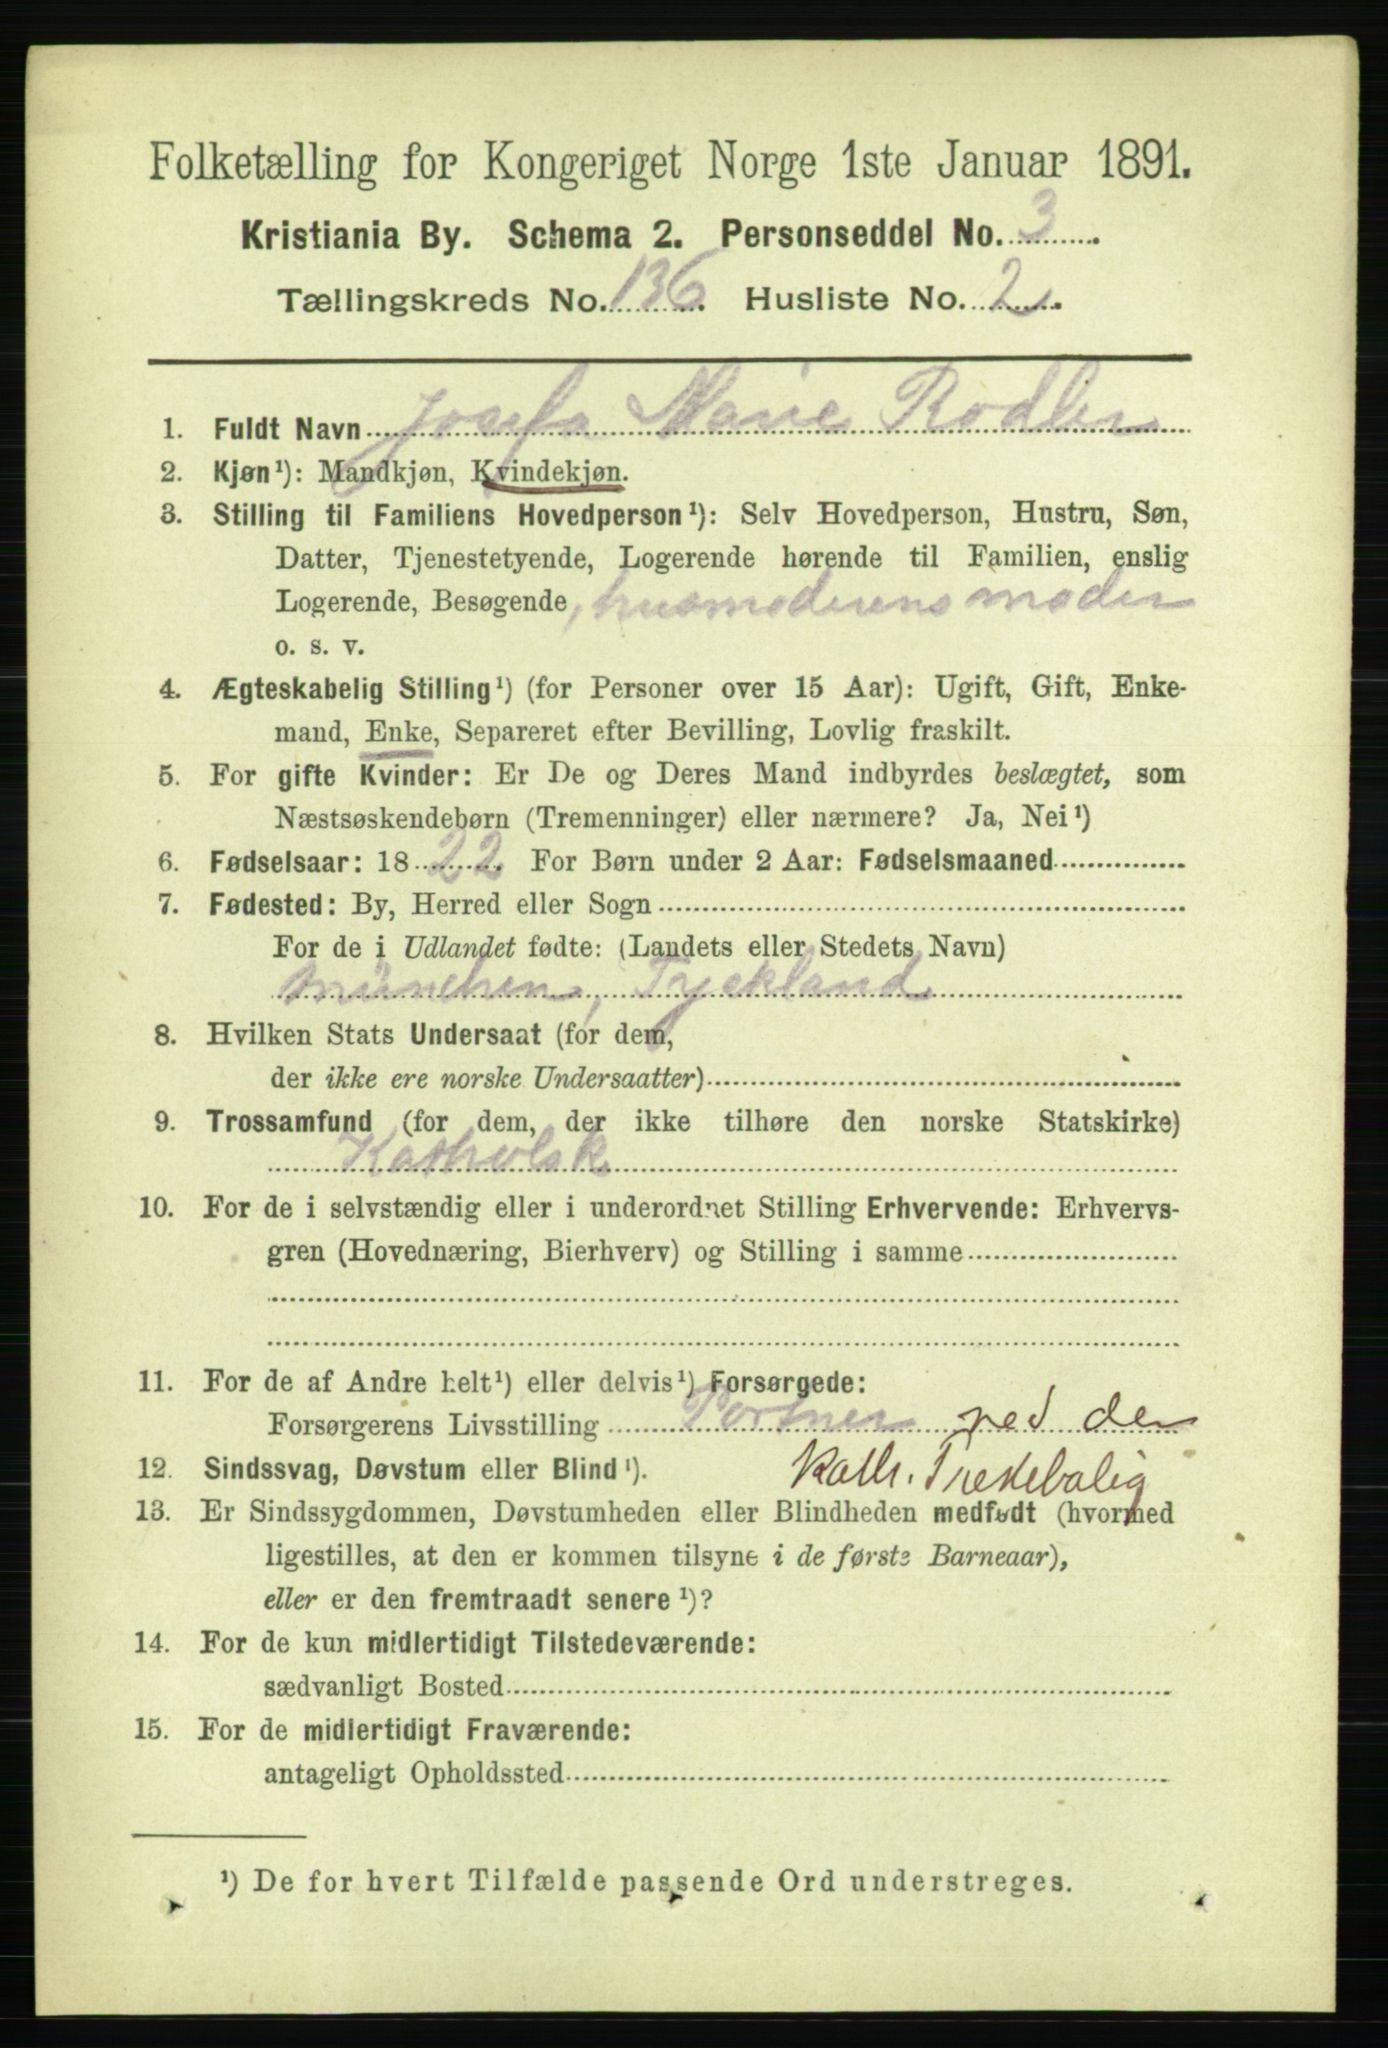 Folketælling for Kongeriget Norge 1ste Januar 1891.
Kristiania By. Schema 2. Personseddel No. 3.
Tællingskreds No. 136. Husliste No. 2.
1. Fuldt Navn Josefa Marie Rodler
2. Kjøn¹): Mandkjøn, Kvindekjøn.
3. Stilling til Familiens Hovedperson¹): Selv Hovedperson, Hustru, Søn,
Datter, Tjenestetyende, Logerende hørende til Familien, enslig
Logerende, Besøgende, husmoderens moder
o. s. v.
4. Ægteskabelig Stilling¹) (for Personer over 15 Aar): Ugift, Gift, Enke-
mand, Enke, Separeret efter Bevilling, Lovlig fraskilt.
5. For gifte Kvinder: Er De og Deres Mand indbyrdes beslægtet, som
Næstsøskendebørn (Tremenninger) eller nærmere? Ja, Nei¹)
6. Fødselsaar: 1822. For Børn under 2 Aar: Fødselsmaaned
7. Fødested: By, Herred eller Sogn
For de i Udlandet fødte: (Landets eller Stedets Navn)
München, Tyskland
8. Hvilken Stats Undersaat (for dem,
der ikke ere norske Undersaatter)
9. Trossamfund (for dem, der ikke tilhøre den norske Statskirke)
Katholsk
10. For de i selvstændig eller i underordnet Stilling Erhvervende: Erhvervs-
gren (Hovednæring, Bierhverv) og Stilling i samme
11. For de af Andre helt¹) eller delvis¹) Forsørgede:
Forsørgerens Livsstilling Portner ved den
kath.
12. Sindssvag, Døvstum eller Blind¹).
13. Er Sindssygdommen, Døvstumheden eller Blindheden medfødt (hvormed
ligestilles, at den er kommen tilsyne i de første Barneaar),
eller er den fremtraadt senere¹)?
14. For de kun midlertidigt Tilstedeværende:
sædvanligt Bosted
15. For de midlertidigt Fraværende:
antageligt Opholdssted
¹) De for hvert Tilfælde passende Ord understreges.